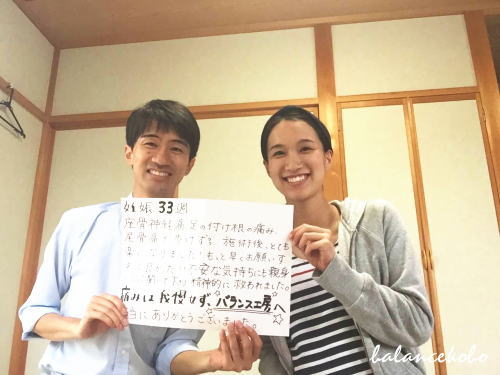 妊娠33週
座骨神経痛足の付け根の痛み、
施術後、とても
楽になりました！もっと早くお願いす
不安な気持ちにも親身
精神的に救われました。
痛みは我慢せず、バランス工房へ
当にありがとうございました。
balancekobo